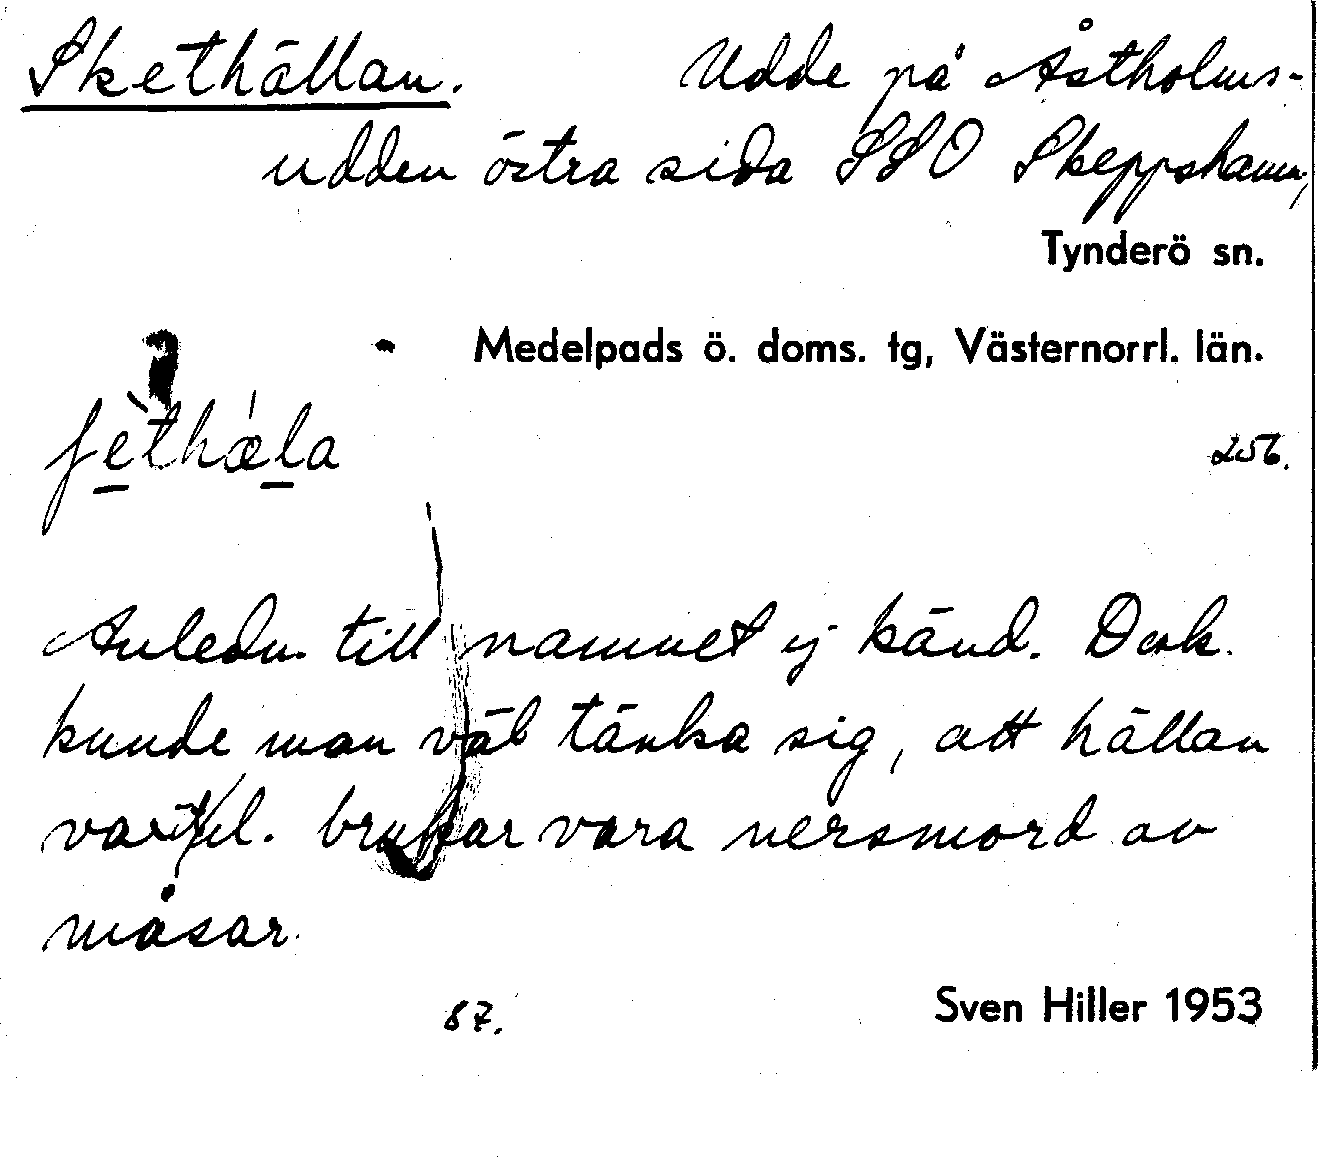 Skethällan. Udde på Åstholms-
udden östra sida SSO Skeppshamn,
Tynderö sn.
Medelpads ö. doms. tg, Västernorrl. län.
ʃèthæ̀la
256.
Anledn. till namnet ej känd. Dock
kunde man väl tänka sig, att hällan
brukar vara nersmord av
måsar.
87.
Sven Hiller 1953